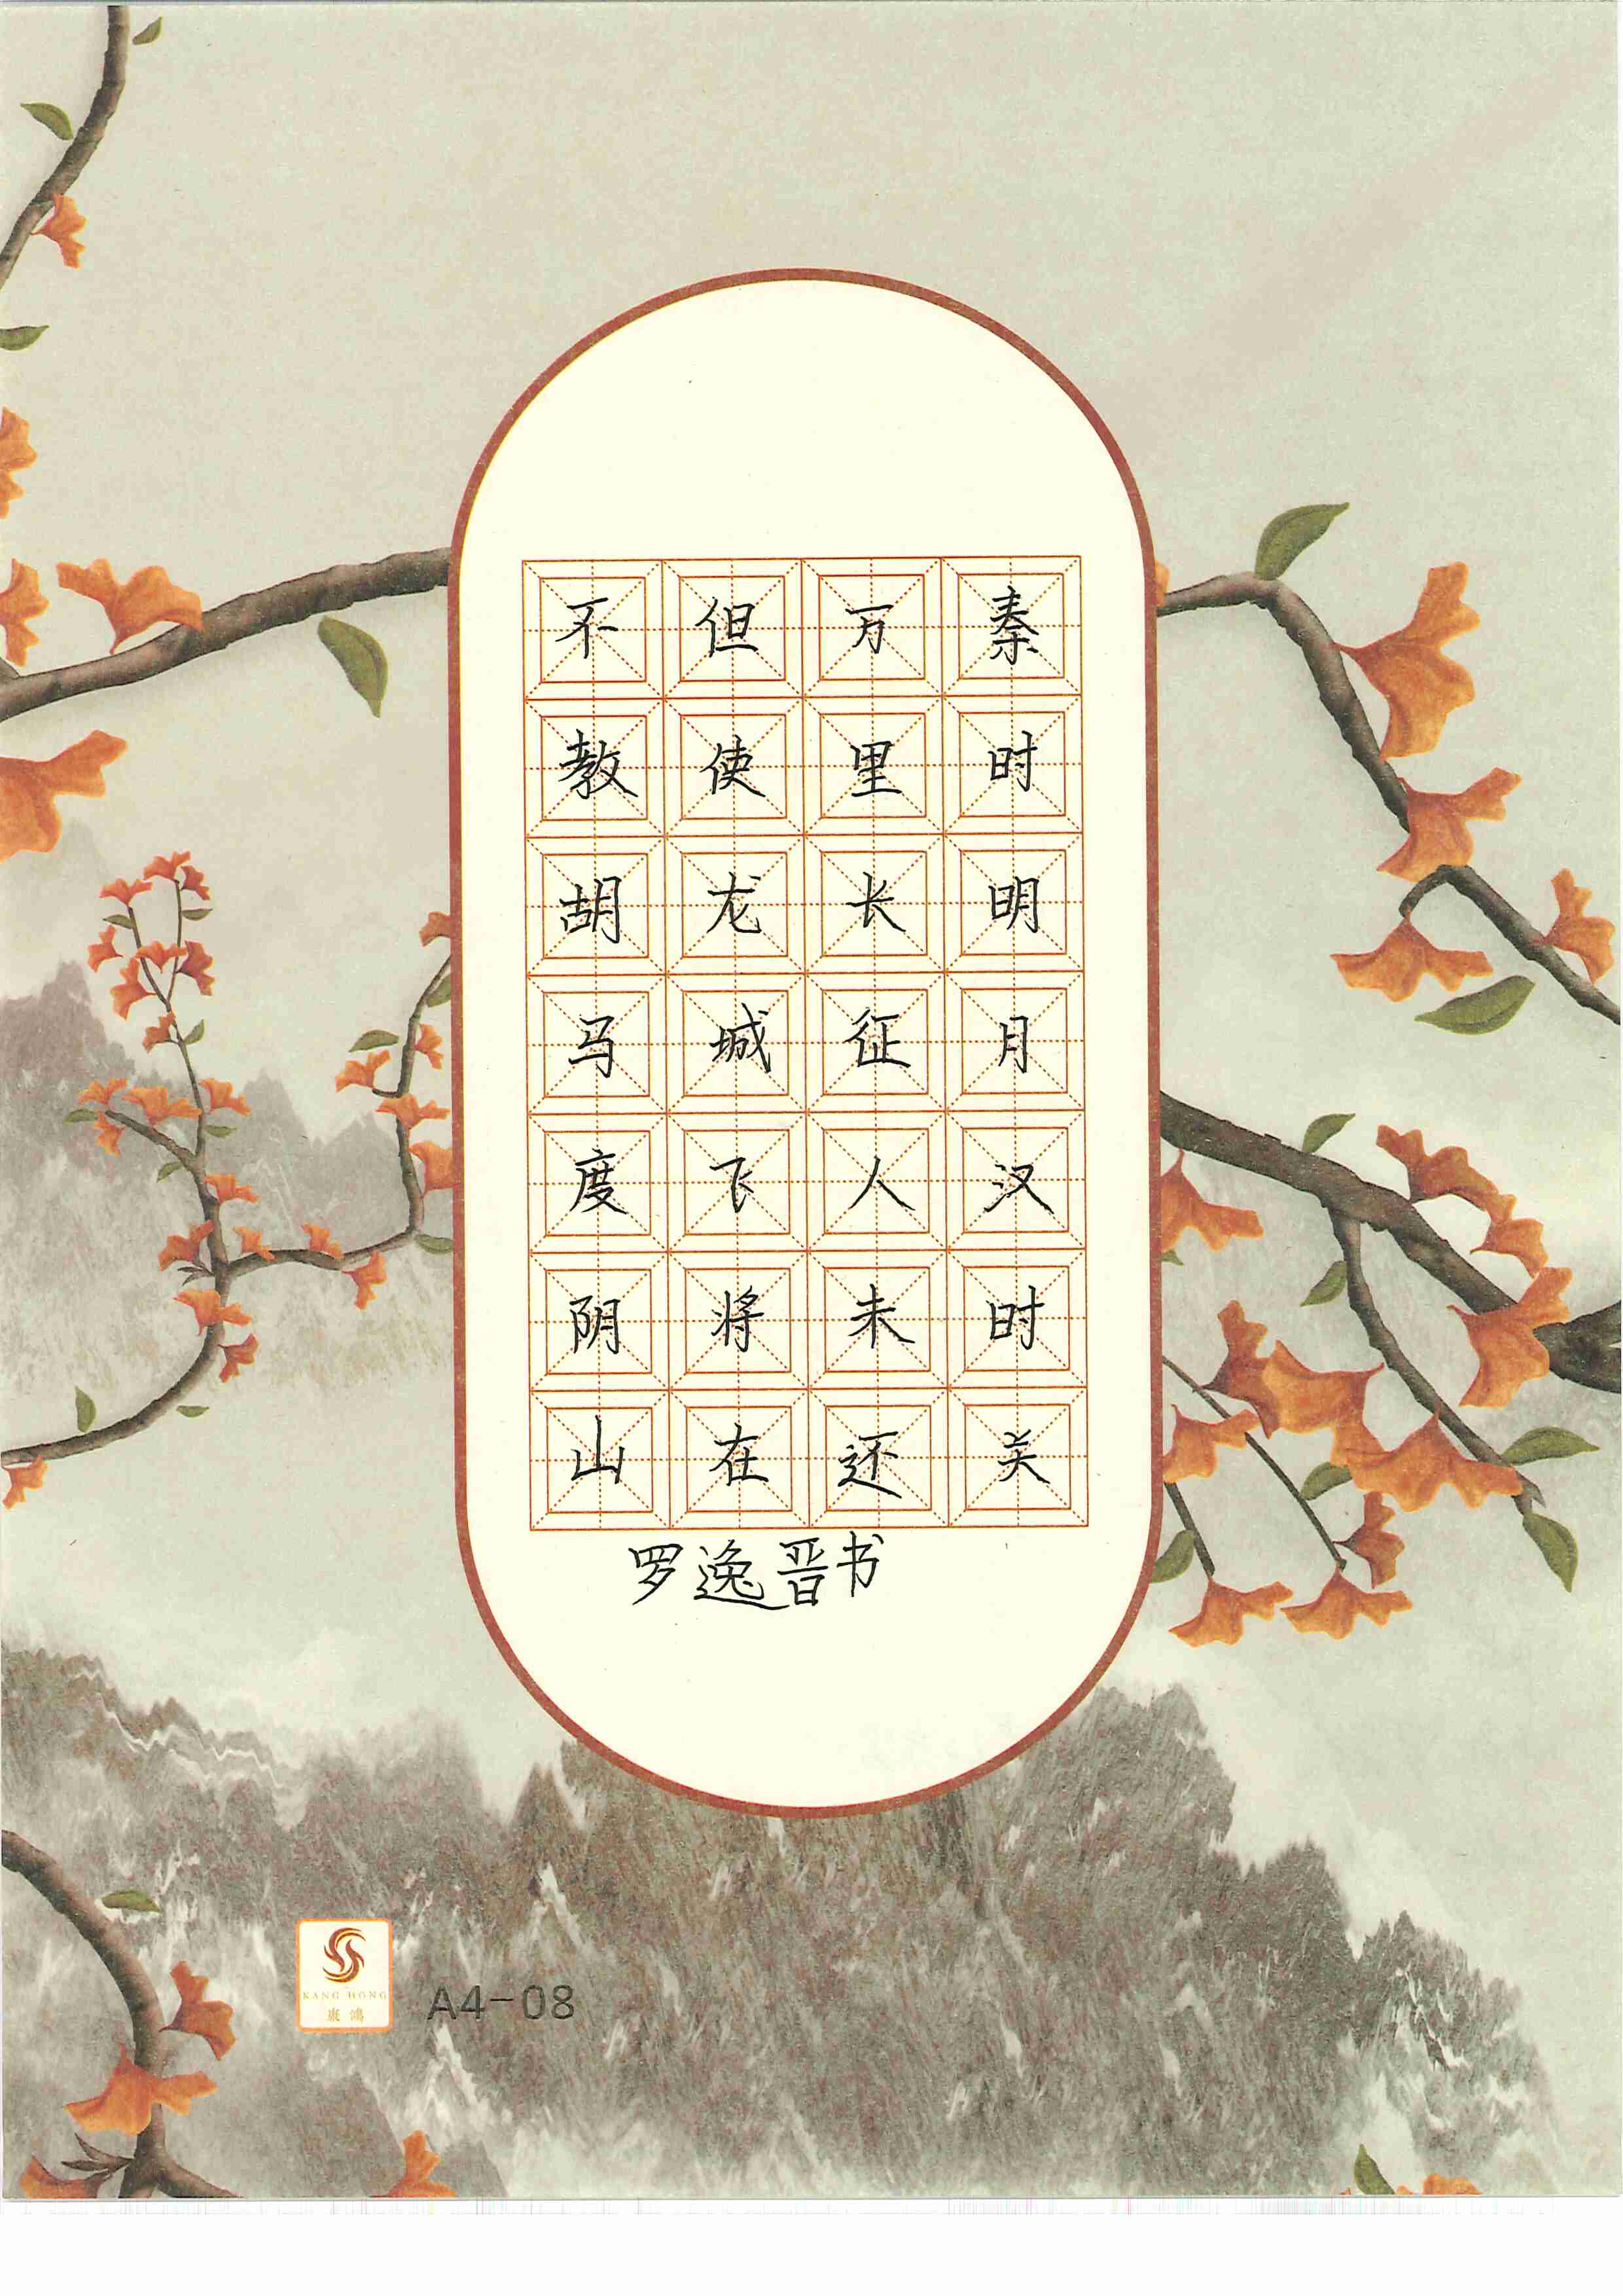 秦时明月汉时关
万里长征人未还
但使龙城飞将在
不教胡马度阴山
罗逸晋书
KANG HONG
康鸿
A4-08